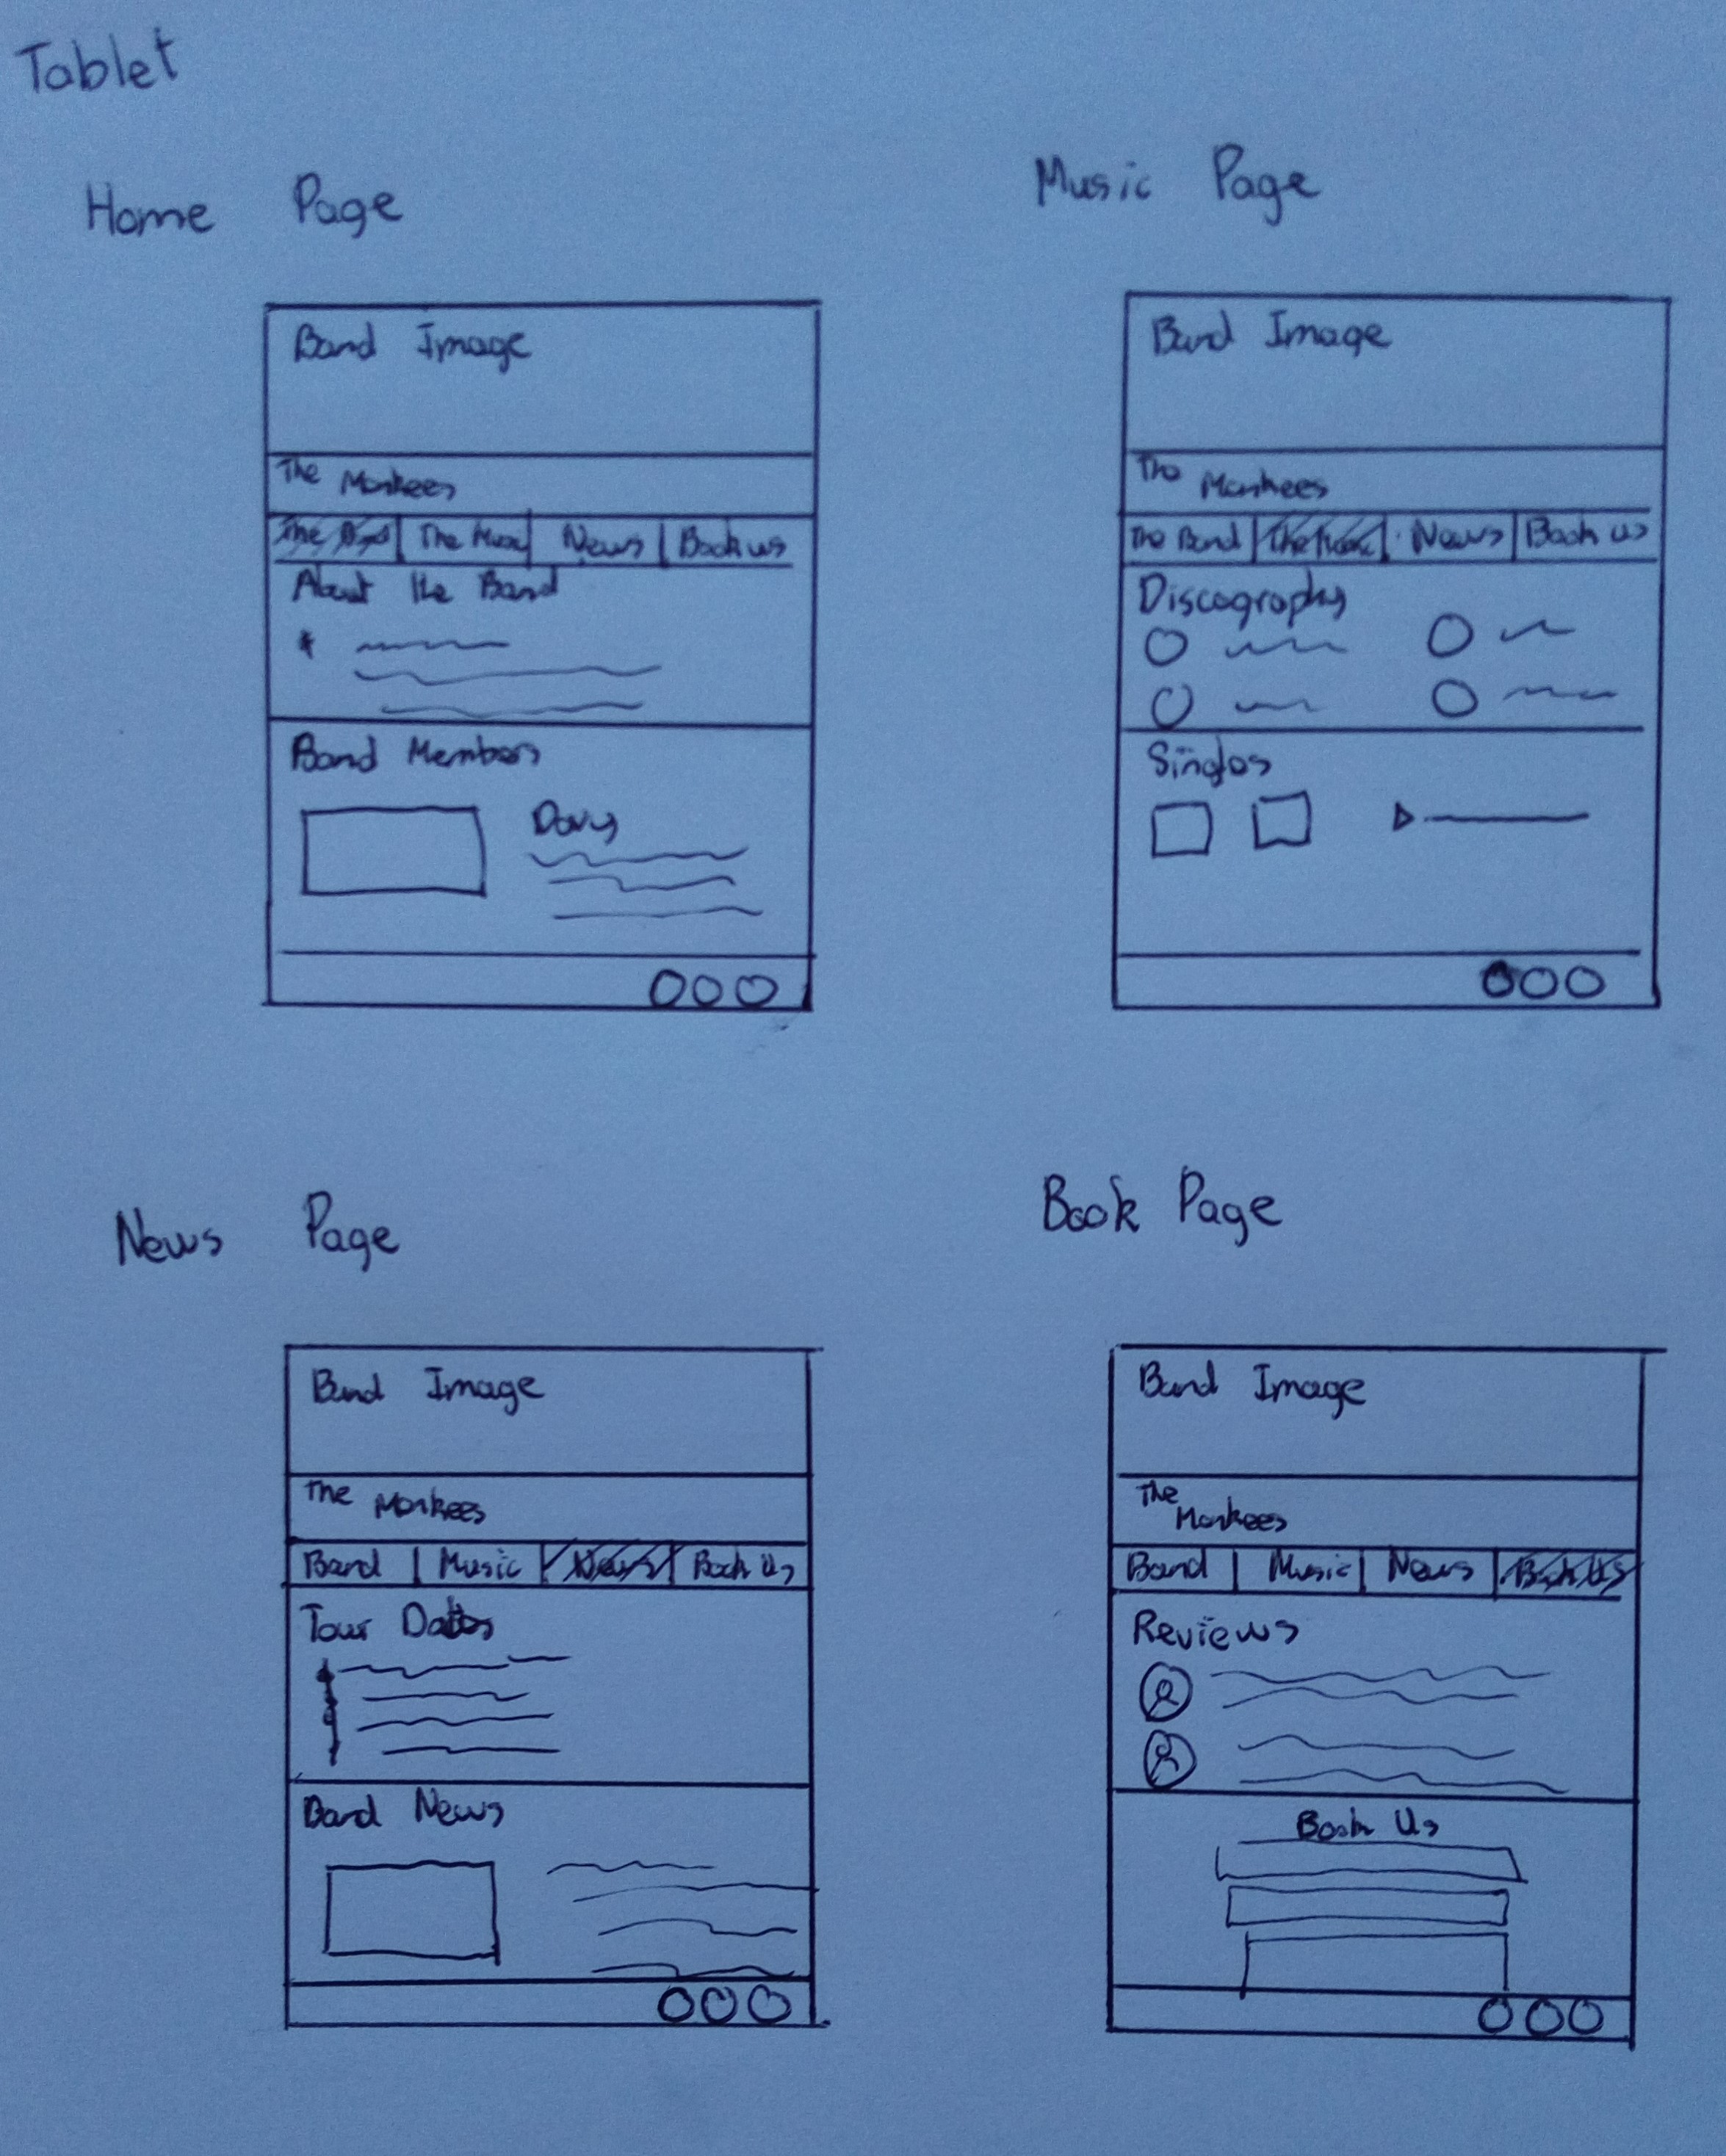 Tablet
Home Page
Band Image
The Monkees
The Band The Music News Book us
About the Band
Band Members
Davy
Music Page
Band Image
The Monkees
The Band The Music News Book us
Discography
Singles
News Page
Band Image
The Monkees
Band Music News Book Us
Tour Dates
Band News
Book Page
Band Image
The Monkees
Band Music News Book Us
Reviews
Book Us